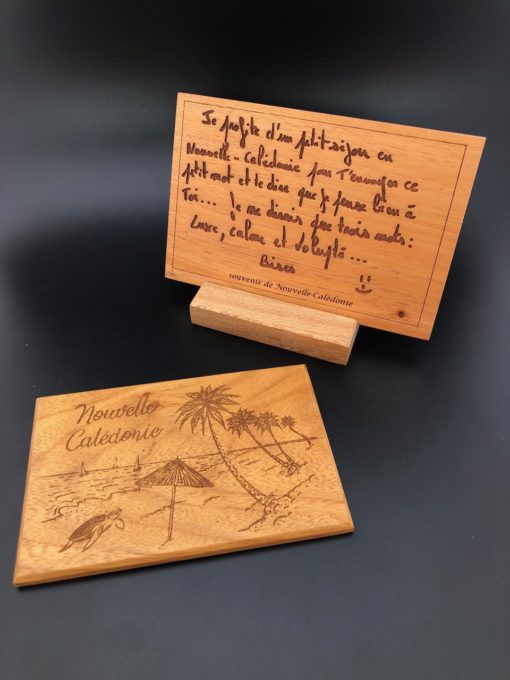 Je profite d'un petit séjour en
Nouvelle-Calédonie pour T'envoyer ce
petit mot et te dire que je pense bien à
Toi... Je ne dirais que trois mots:
Luxe, calme et Volupté...
Bises
souvenir de Nouvelle-Calédonie
Nouvelle
Calédonie